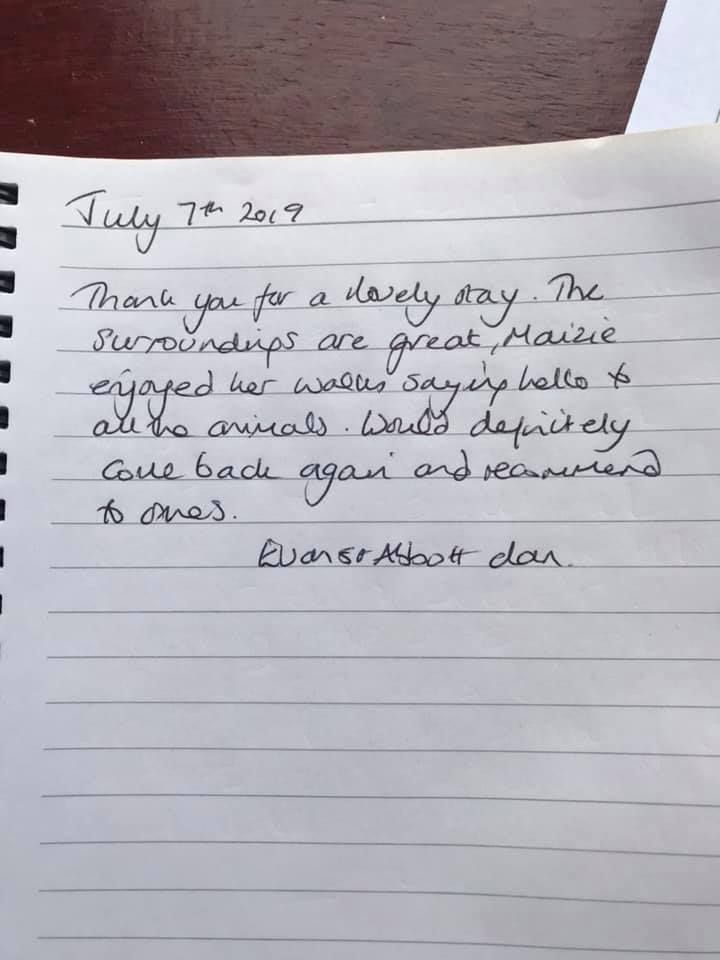 July 7th 2019
Thank you for a lovely stay. The
surroundings are great, Maizie
enjoyed her walks saying hello to
all the animals. Would definitely
come back again and recommend
to others.
Evans & Abbott clan.